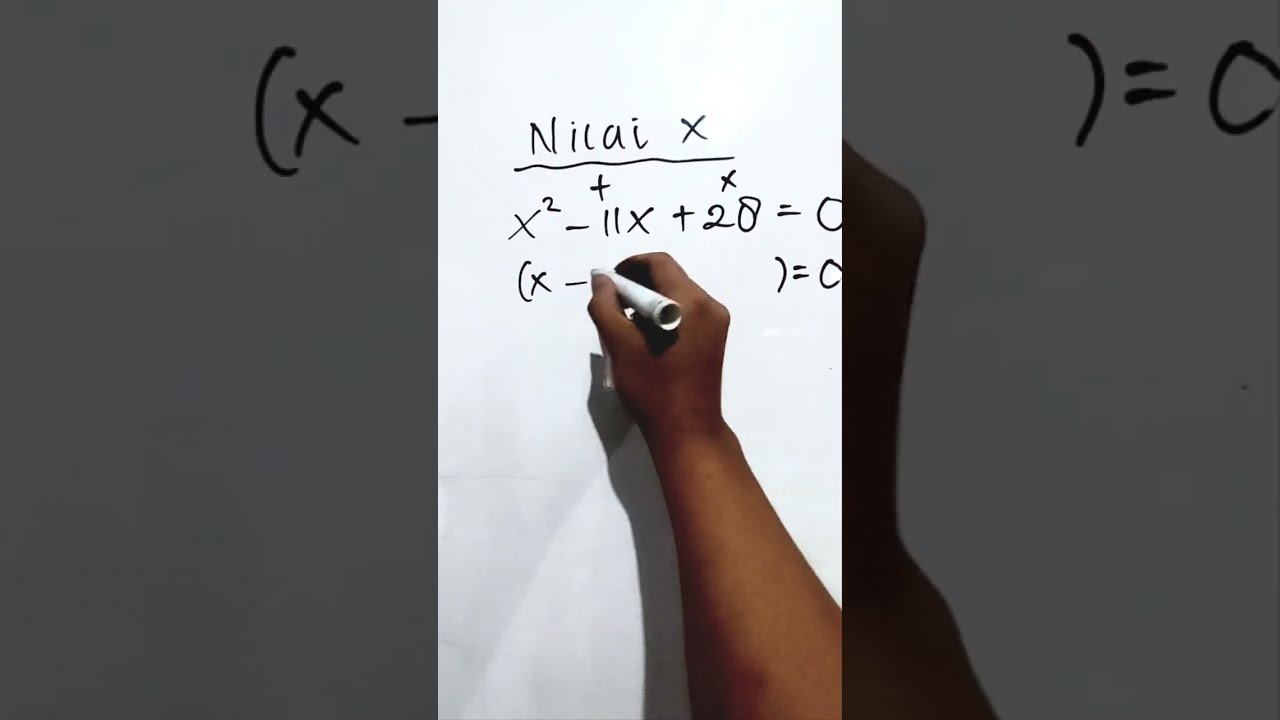 Nilai x
+ x
x² - 11x + 28 = 0
(x - ) = 0